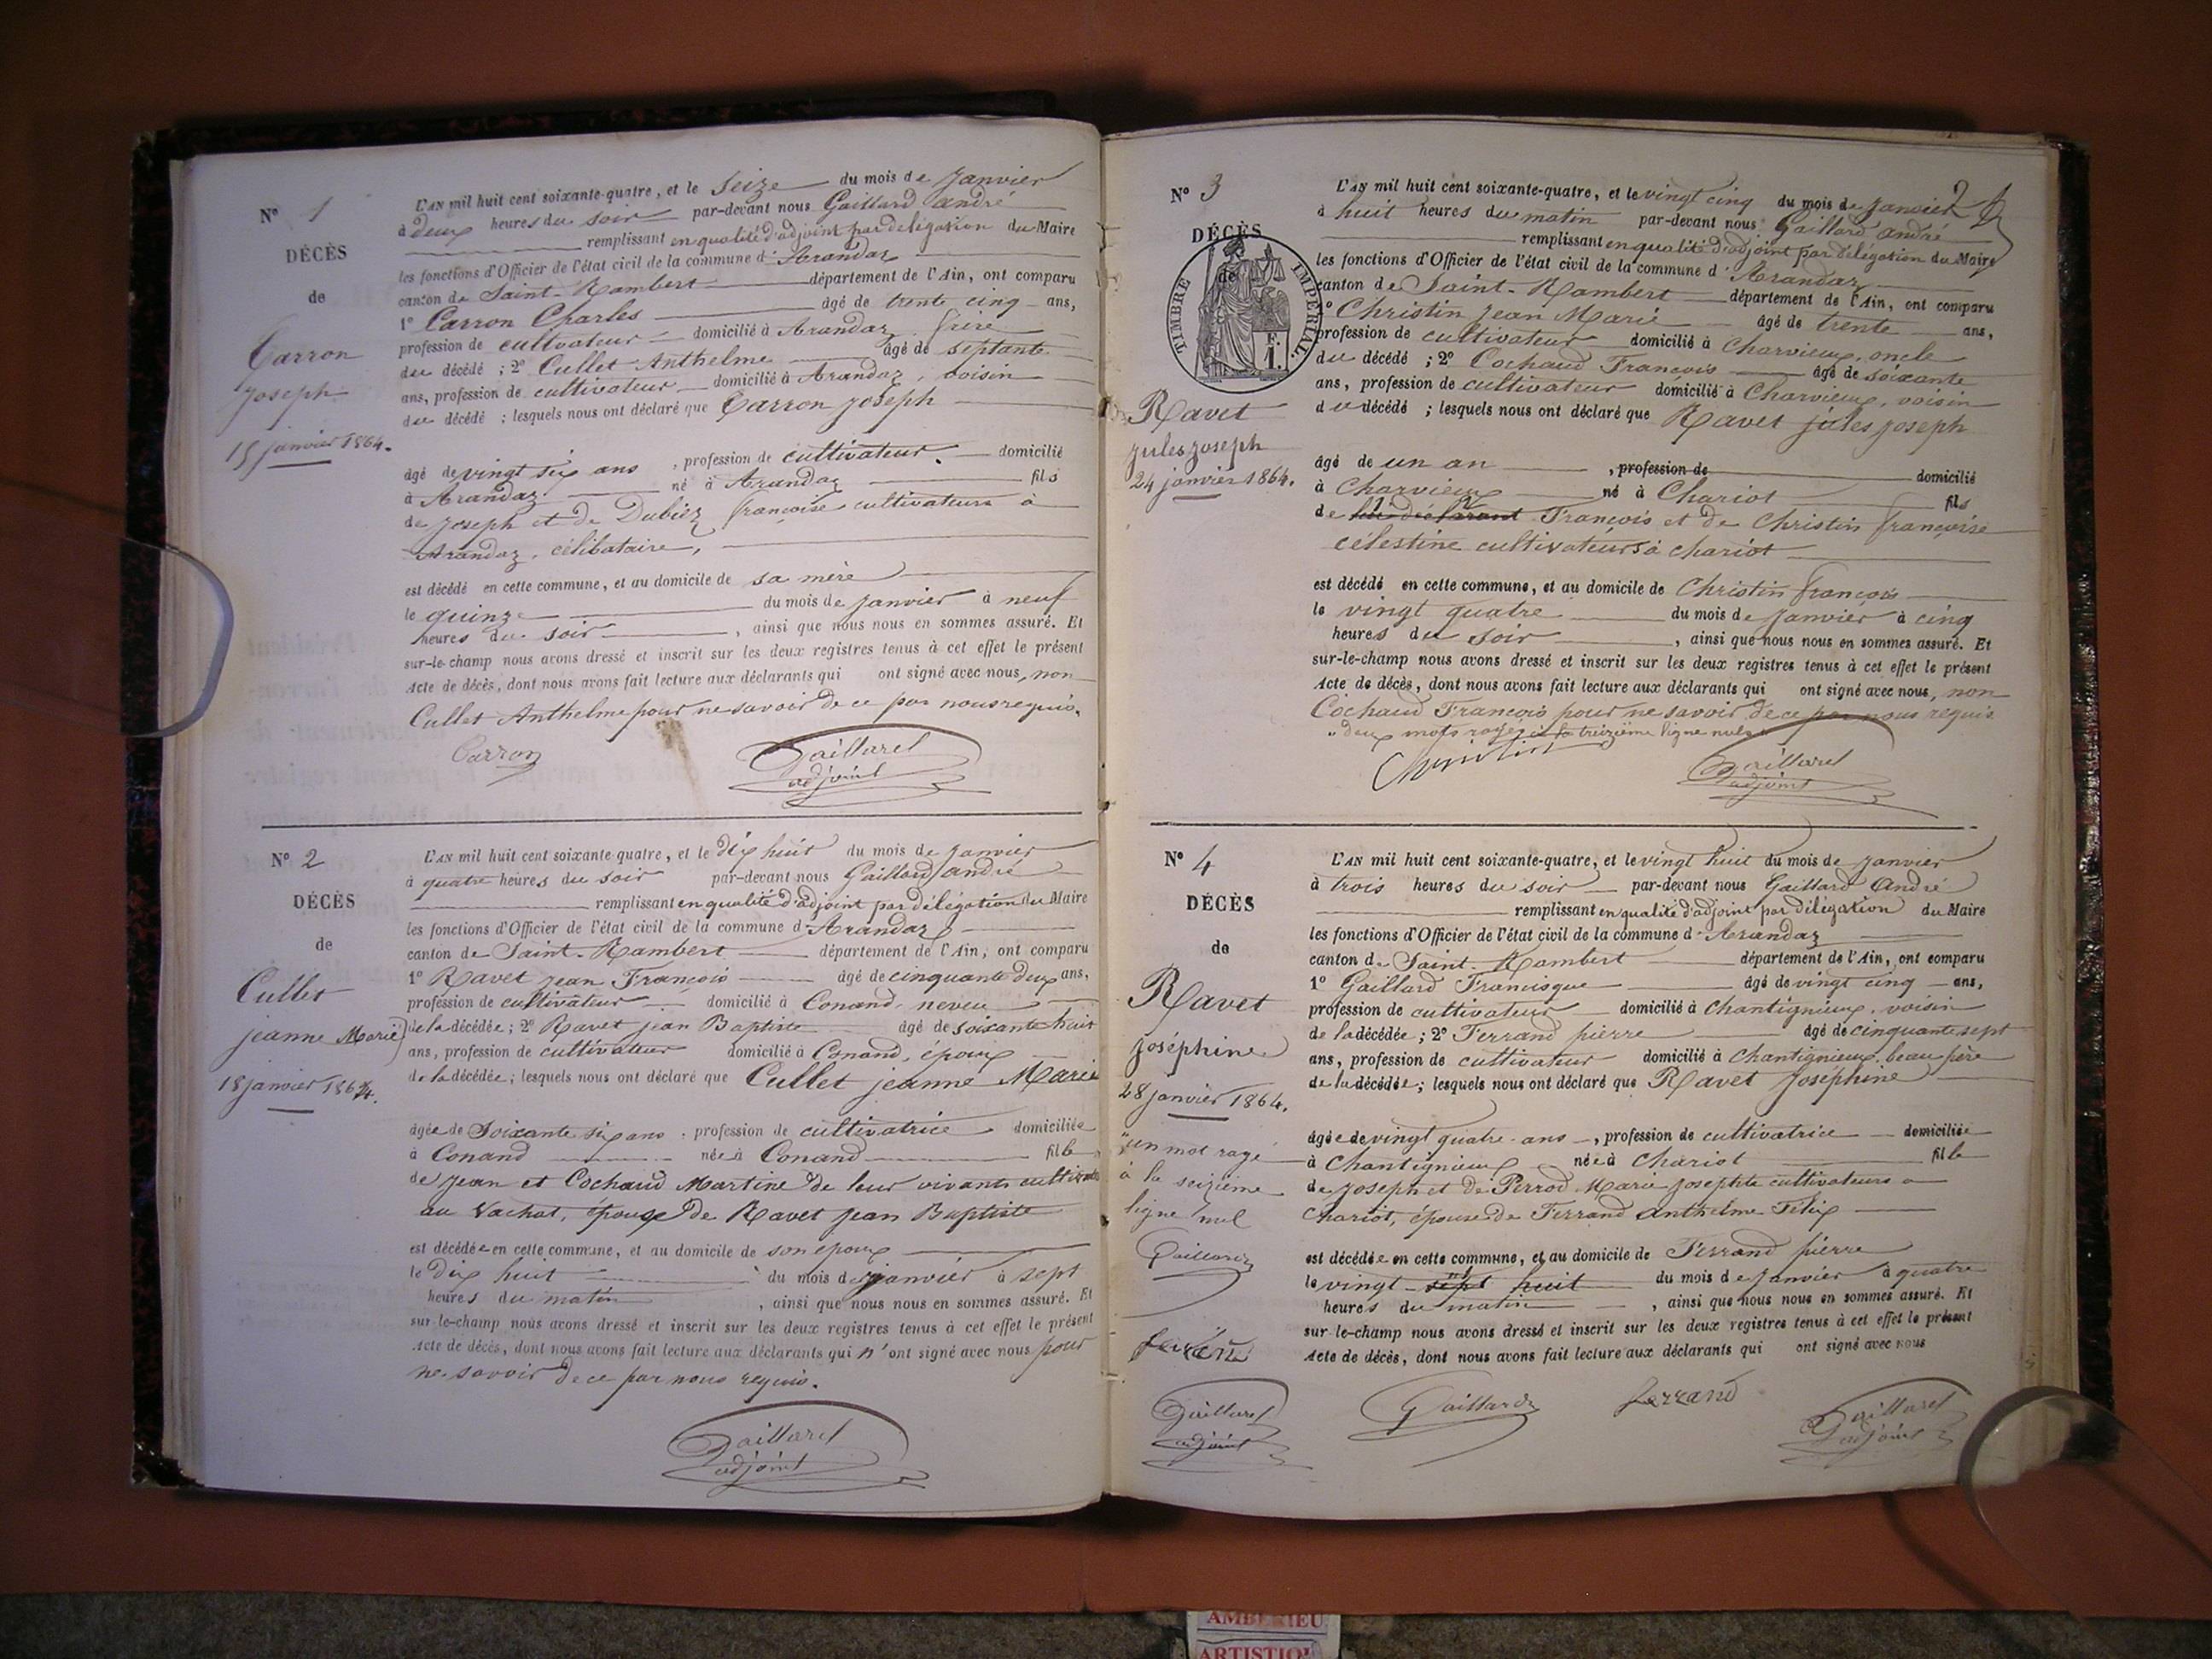 N° 1
DÉCÈS
de
Carron
Joseph
15 janvier 1864.
L'AN mil huit cent soixante-quatre, et le seize du mois de janvier
à deux heures du soir par-devant nous Gaillard andré
remplissant en qualité d'adjoint par délégation du Maire
les fonctions d'Officier de l'état civil de la commune d'Arandaz
canton de Saint-Rambert département de l'Ain, ont comparu
1° Carron Charles âgé de trente cinq ans,
profession de cultivateur domicilié à Arandaz, frère
du décédé ; 2° Cullet Anthelme âgé de septante
ans, profession de cultivateur domicilié à Arandaz, voisin
du décédé ; lesquels nous ont déclaré que Carron joseph
âgé de vingt six ans, profession de cultivateur. domicilié
à Arandaz né à Arandaz fils
de joseph et de Dubiez françoise cultivateurs à
Arandaz, célibataire,
est décédé en cette commune, et au domicile de sa mère
le quinze du mois de janvier à neuf
heures du soir, ainsi que nous nous en sommes assuré. Et
sur-le-champ nous avons dressé et inscrit sur les deux registres tenus à cet effet le présent
Acte de décès, dont nous avons fait lecture aux déclarants qui ont signé avec nous, non
Cullet Anthelme pour ne savoir de ce par nous requis.
Carron
Gaillard
adjoint
N° 2
DÉCÈS
de
Cullet
jeanne Marie
18 janvier 1864.
L'AN mil huit cent soixante-quatre, et le dix huit du mois de janvier
à quatre heures du soir par-devant nous Gaillard andré
remplissant en qualité d'adjoint par délégation du Maire
les fonctions d'Officier de l'état civil de la commune d'Arandaz
canton de Saint-Rambert département de l'Ain, ont comparu
1° Ravet jean François âgé de cinquante deux ans,
profession de cultivateur domicilié à Conand, neveu
de la décédée ; 2° Ravet jean Baptiste âgé de soixante huit
ans, profession de cultivateur domicilié à Conand, époux
de la décédée ; lesquels nous ont déclaré que Cullet jeanne Marie
âgée de soixante six ans, profession de cultivatrice domiciliée
à Conand née à Conand fille
de jean et Cochaud Martine de leur vivants cultivateurs
au Vachat, épouse de Ravet jean Baptiste
est décédée en cette commune, et au domicile de son époux
le dix huit du mois de janvier à sept
heures du matin, ainsi que nous nous en sommes assuré. Et
sur-le-champ nous avons dressé et inscrit sur les deux registres tenus à cet effet le présent
Acte de décès, dont nous avons fait lecture aux déclarants qui n'ont signé avec nous pour
ne savoir de ce par nous requis.
Gaillard
adjoint
2
N° 3
DÉCÈS
de
TIMBRE IMPÉRIAL
1 F.
Ravet
jules joseph
24 janvier 1864.
L'AN mil huit cent soixante-quatre, et le vingt cinq du mois de janvier
à huit heures du matin par-devant nous Gaillard andré
remplissant en qualité d'adjoint par délégation du Maire
les fonctions d'Officier de l'état civil de la commune d'Arandaz
canton de Saint-Rambert département de l'Ain, ont comparu
1° Christin jean Marie âgé de trente ans,
profession de cultivateur domicilié à Charvieux, oncle
du décédé ; 2° Cochaud François âgé de soixante
ans, profession de cultivateur domicilié à Charvieux, voisin
du décédé ; lesquels nous ont déclaré que Ravet jules joseph
âgé de un an, profession de domicilié
à Charvieux né à Chariot fils
de du déclarant François et de Christin françoise
célestine cultivateurs à chariot
est décédé en cette commune, et au domicile de Christin françois
le vingt quatre du mois de janvier à cinq
heures du soir, ainsi que nous nous en sommes assuré. Et
sur-le-champ nous avons dressé et inscrit sur les deux registres tenus à cet effet le présent
Acte de décès, dont nous avons fait lecture aux déclarants qui ont signé avec nous, non
Cochaud François pour ne savoir de ce par nous requis
deux mots rayés à la treizième ligne nuls
Christin
Gaillard
adjoint
N° 4
DÉCÈS
de
Ravet
joséphine
28 janvier 1864.
un mot rayé
à la seizième
ligne nul
Gaillard
Ferrand
Gaillard
adjoint
L'AN mil huit cent soixante-quatre, et le vingt huit du mois de janvier
à trois heures du soir par-devant nous Gaillard André
remplissant en qualité d'adjoint par délégation du Maire
les fonctions d'Officier de l'état civil de la commune d'Arandaz
canton de Saint-Rambert département de l'Ain, ont comparu
1° Gaillard Francisque âgé de vingt cinq ans,
profession de cultivateur domicilié à Chantignieux, voisin
de la décédée ; 2° Ferrand pierre âgé de cinquante sept
ans, profession de cultivateur domicilié à Chantignieux, beau père
de la décédée ; lesquels nous ont déclaré que Ravet Joséphine
âgée de vingt quatre ans, profession de cultivatrice domiciliée
à Chantignieux née à Chariot fille
de joseph et de Perrod Marie josephte cultivateurs à
Chariot, épouse de Ferrand anthelme Félix
est décédée en cette commune, et au domicile de Ferrand pierre
le vingt sept huit du mois de janvier à quatre
heures du matin, ainsi que nous nous en sommes assuré. Et
sur-le-champ nous avons dressé et inscrit sur les deux registres tenus à cet effet le présent
Acte de décès, dont nous avons fait lecture aux déclarants qui ont signé avec nous
Gaillard
ferrand
Gaillard
adjoint
AMBERIEU
ARTISTIQ